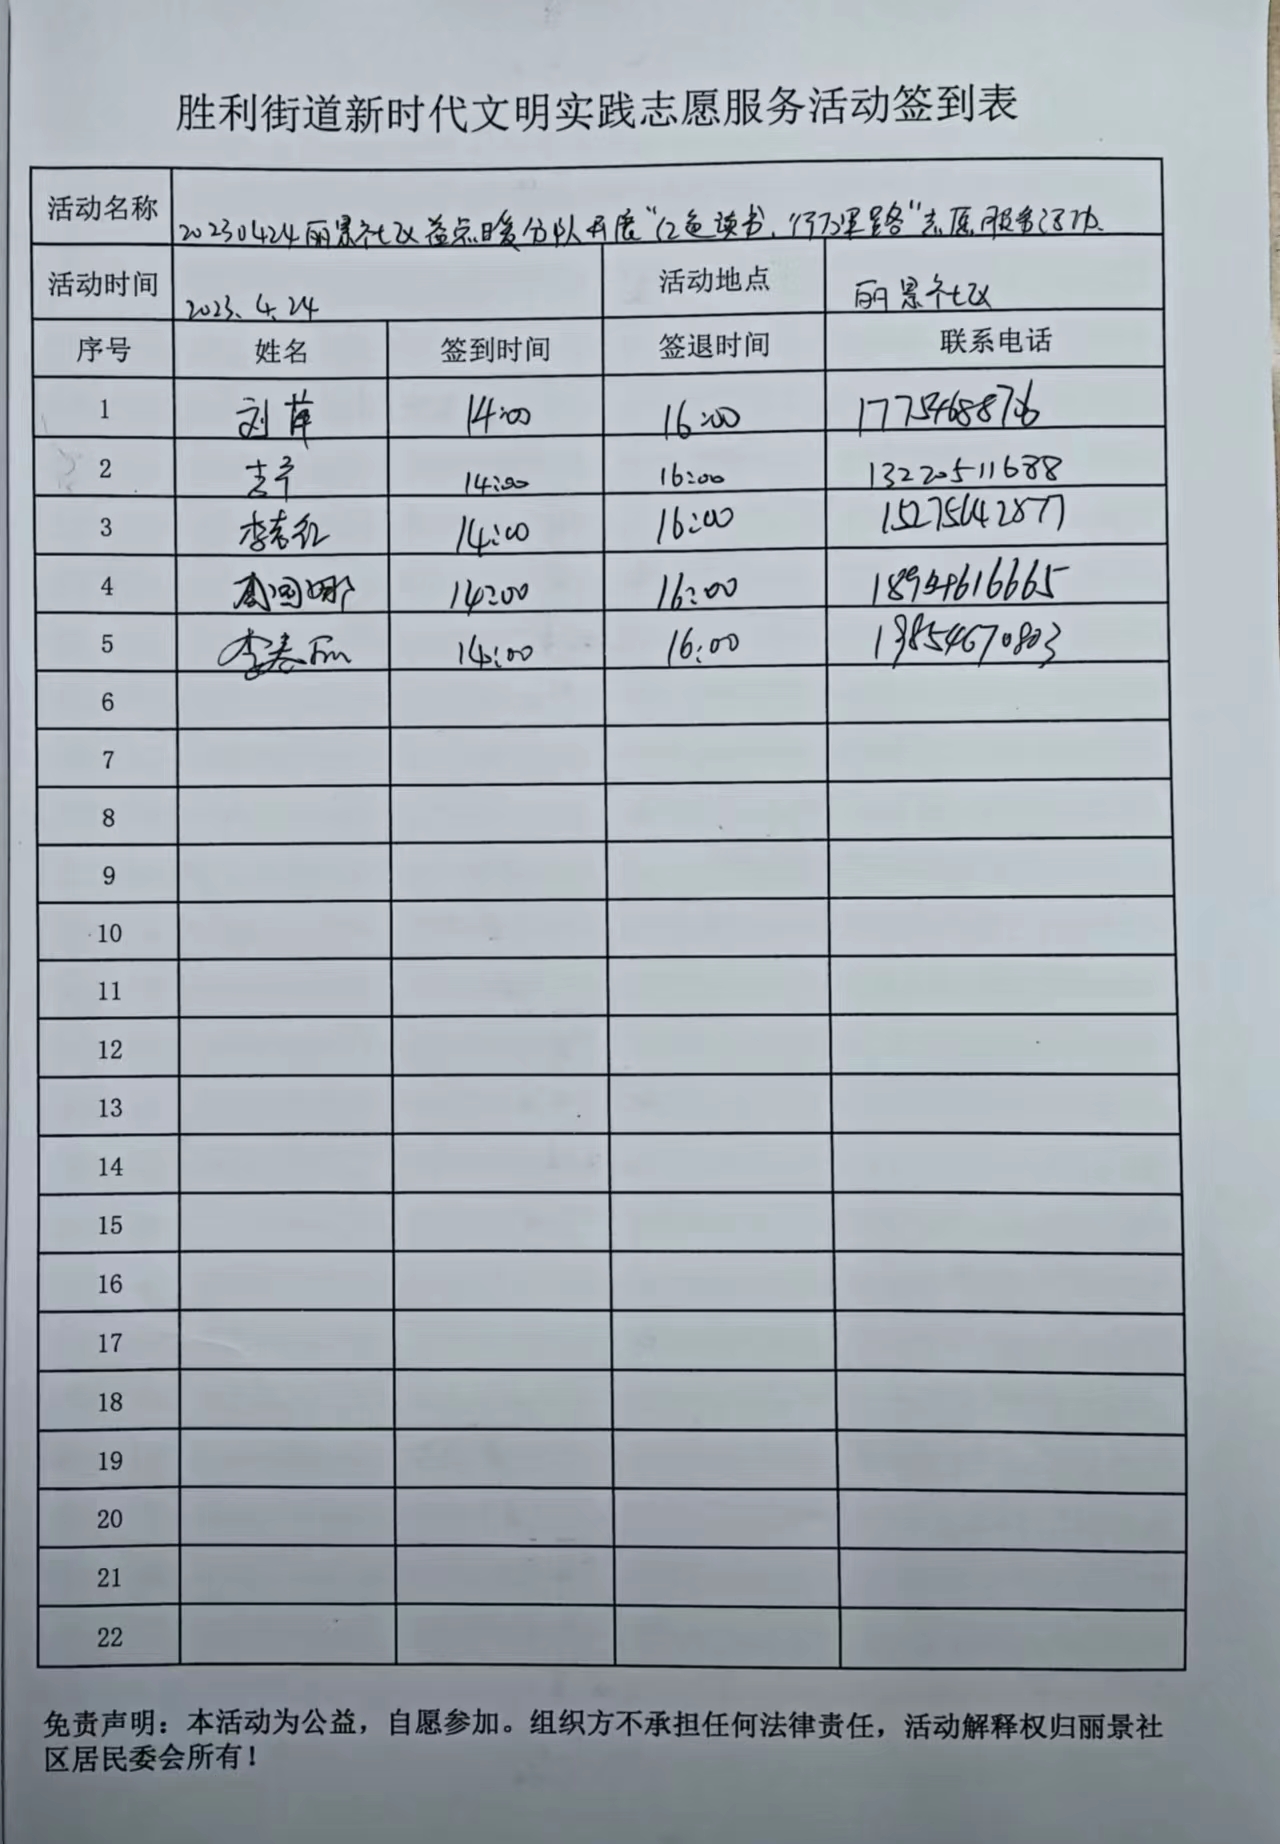 胜利街道新时代文明实践志愿服务活动签到表
活动名称 20230424丽景社区益点暖分队开展“红色读书，行万里路”志愿服务活动
活动时间 2023.4.24 活动地点 丽景社区
序号 姓名 签到时间 签退时间 联系电话
1 刘萍 14:00 16:00
2 14:00 16:00 13220511688
3 14:00 16:00 15275642877
4 14:00 16:00 18954616665
5 李春丽 14:00 16:00 13854670803
6
7
8
9
10
11
12
13
14
15
16
17
18
19
20
21
22
免责声明：本活动为公益，自愿参加。组织方不承担任何法律责任，活动解释权归丽景社
区居民委会所有！